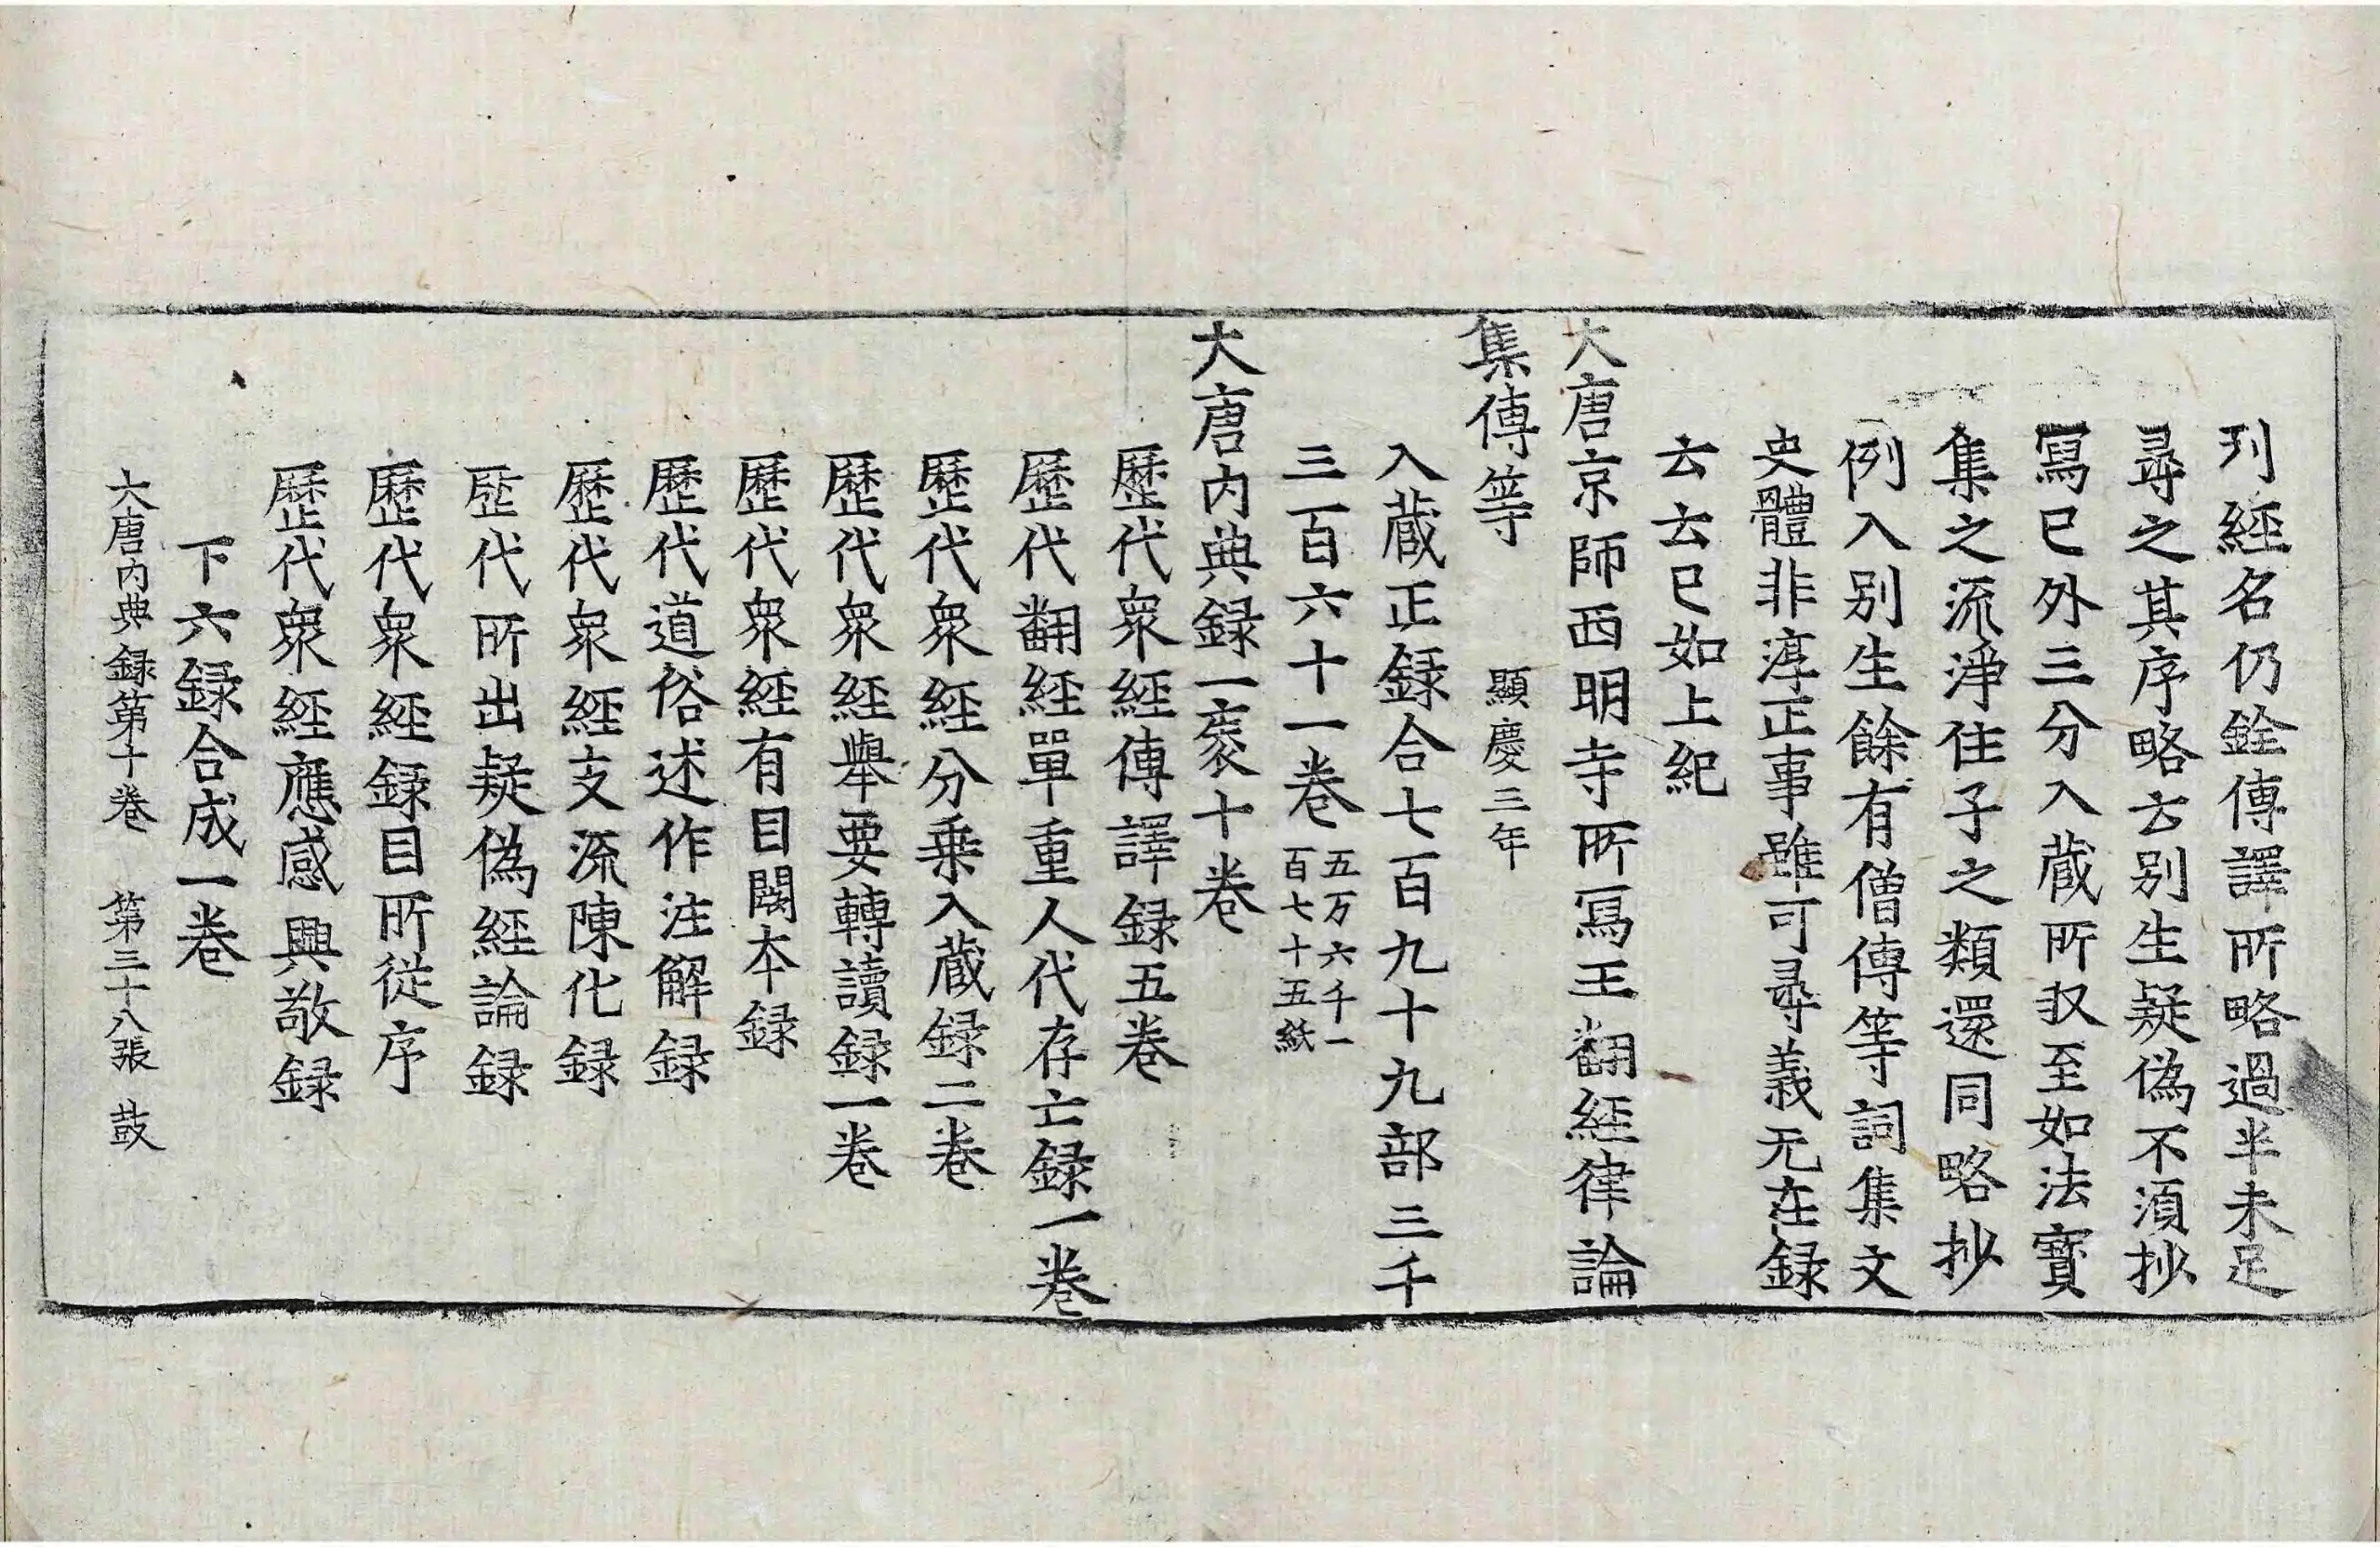 列經名仍銓傳譯所略過半未足
尋之其序略云別生疑偽不須抄
寫已外三分入藏所収至如法寶
集之流淨住子之類還同略抄
例入別生餘有僧傳等詞集文
史體非淳正事雖可尋義无在録
云云已如上紀
大唐京師西明寺所寫王翻經律論
集傳等　顯慶三年
入藏正録合七百九十九部三千
三百六十一卷五万六千一百七十五紙
大唐内典録一袠十卷
歷代衆經傳譯録五卷
歷代翻經單重人代存亡録一卷
歷代衆經分乗入藏録二卷
歷代衆經舉要轉讀録一卷
歷代衆經有目闕本録
歷代道俗述作注解録
歷代衆經支流陳化録
歷代所出疑偽經論録
歷代衆經録目所從序
歷代衆經應感興敬録
下六録合成一卷
大唐内典録第十卷　第三十八張　鼓